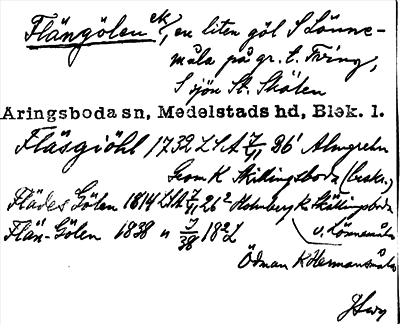 Flängölen ek, en liten göl S Lönne-
måla på gr. t. Tving,
S sjön St. Skälen
Aringsboda sn, Medelstads hd, Blek. l.
Fläsgiöhl 1732 LSA J/91 86¹ Almgrehn
Geom K Skillingsboda (beskr.)
Flädes Gölen 1814 LSA J/91 26² Holmberg K Skällingsboda
o. Lönnemåla
Flän-Gölen 1838 " J/38 18² L
Ödman K Hermansmåla